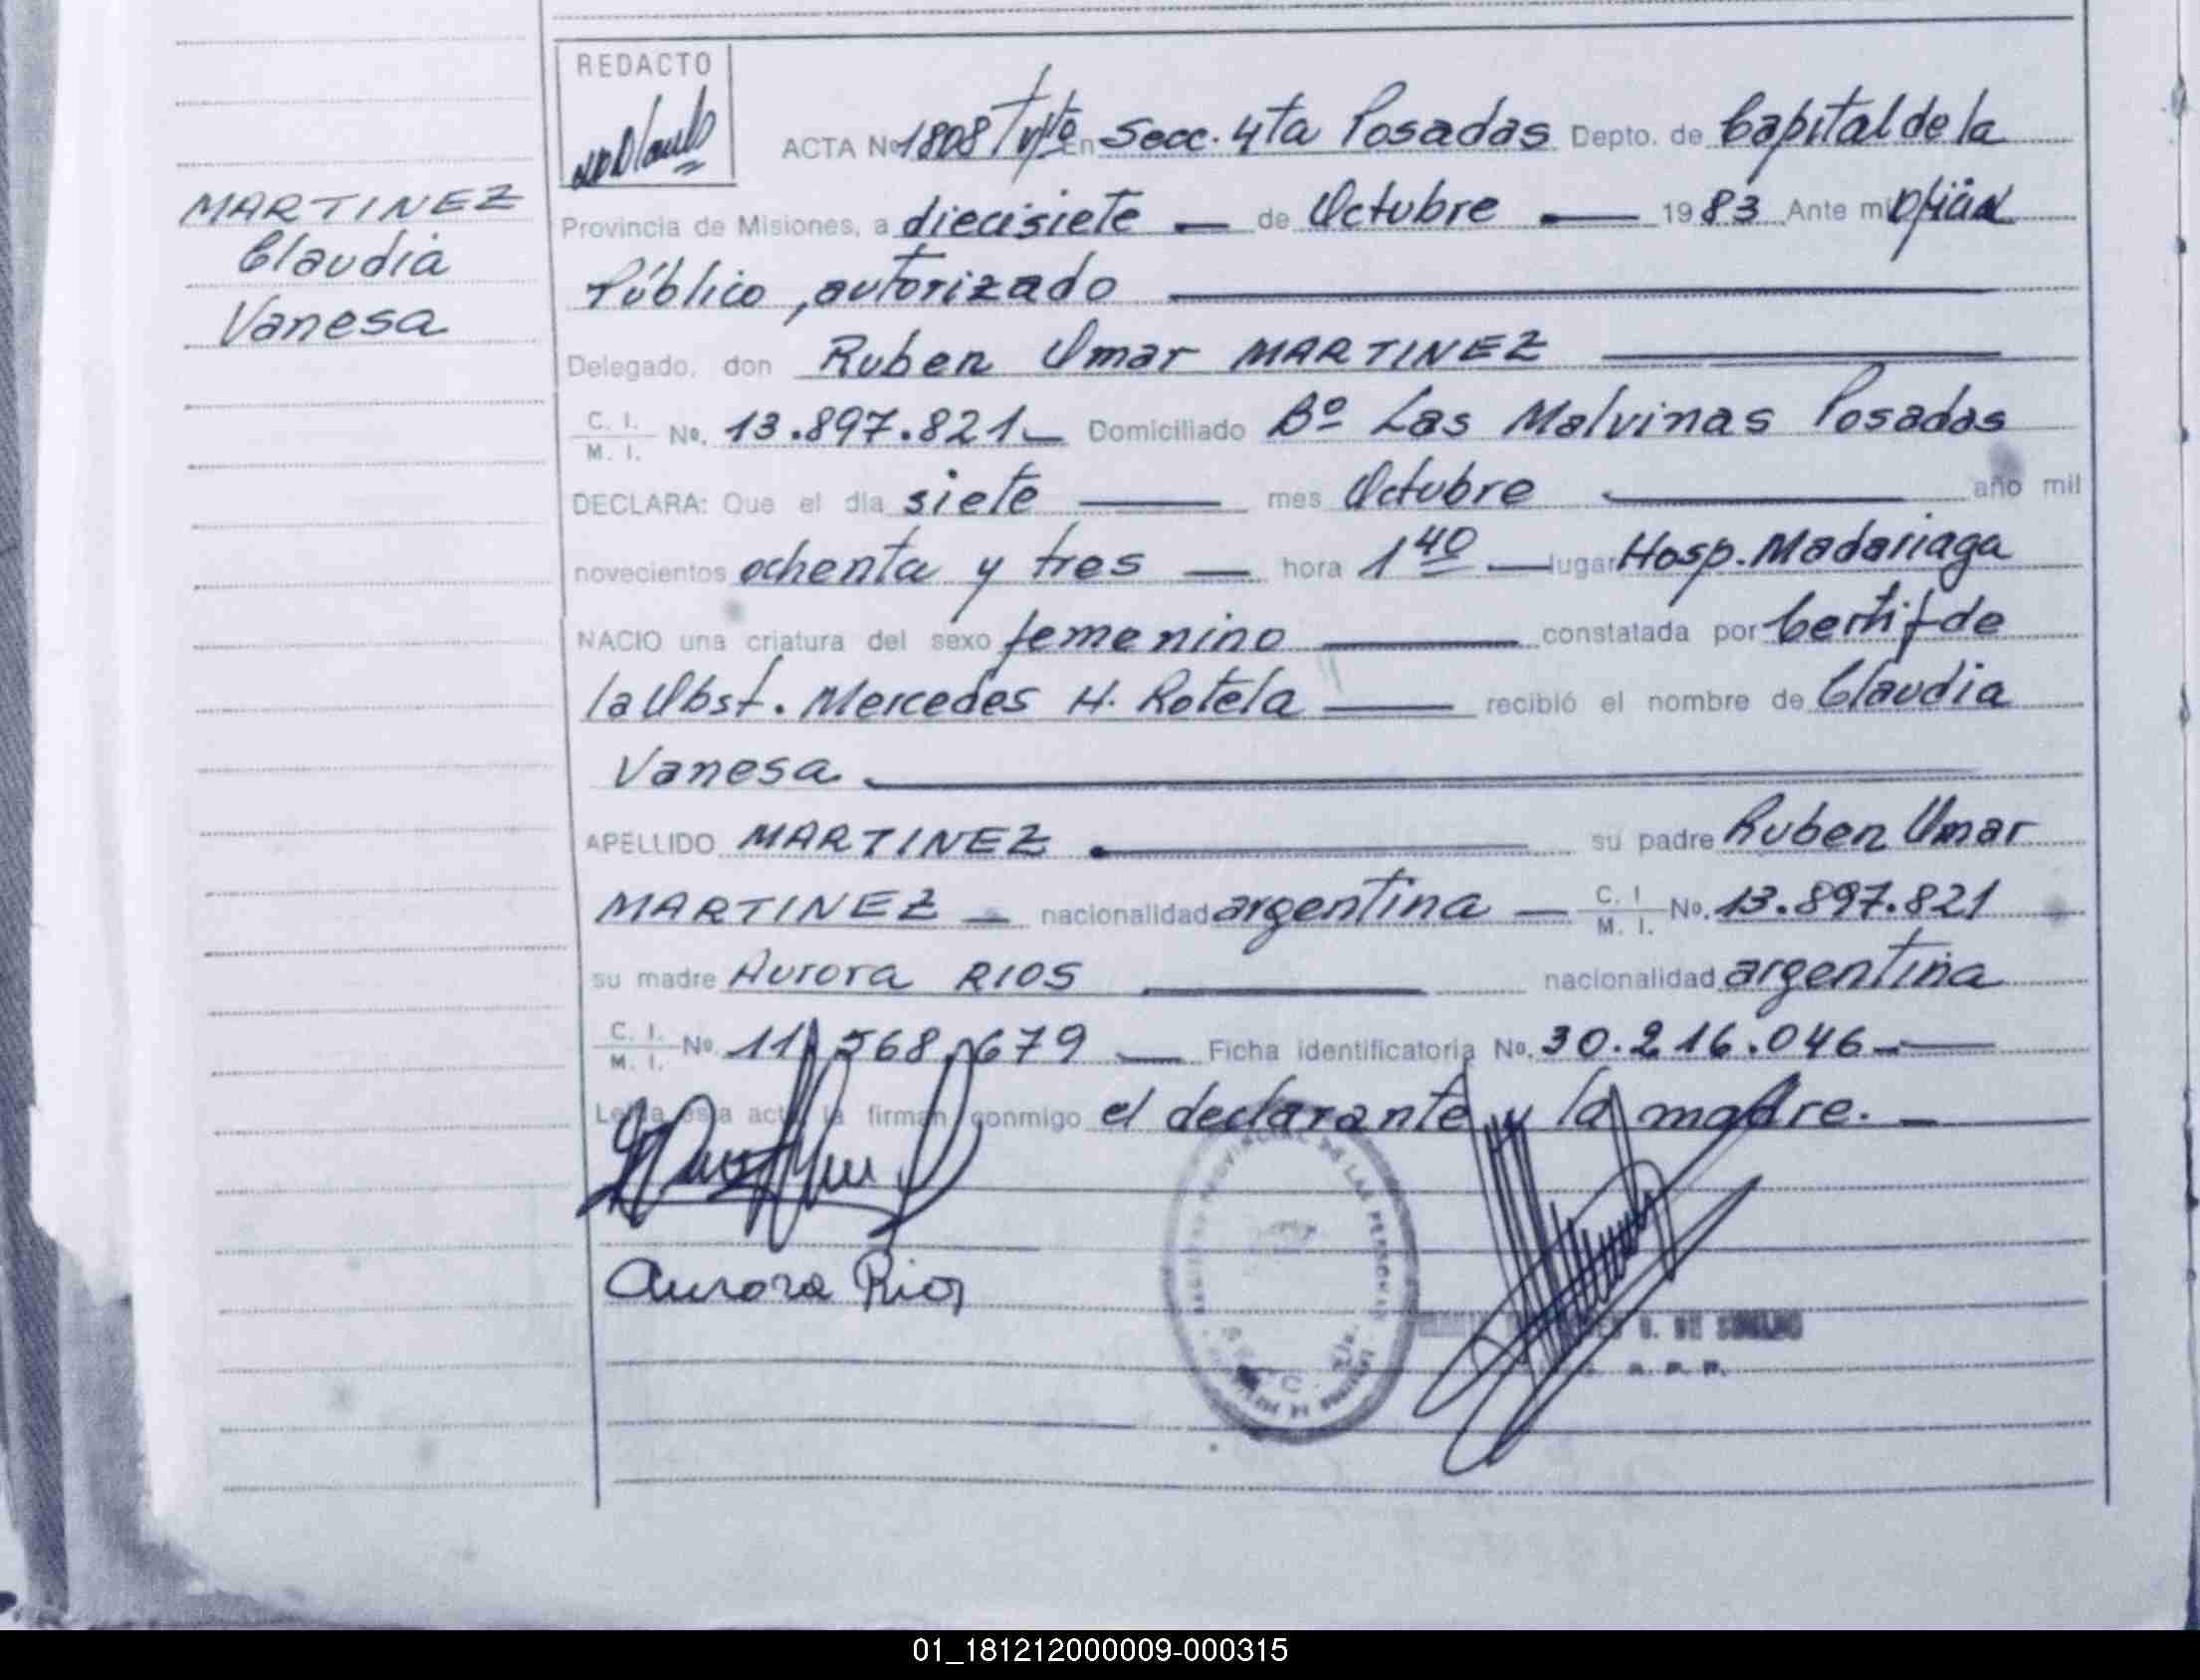 REDACTO
ACTA Nº 1808 En Secc. 4ta Posadas Depto. de Capital de la
MARTINEZ
Claudia
Vanesa
Provincia de Misiones, a diecisiete de Octubre 1983 Ante mi Oficial
Público, autorizado
Delegado, don Ruben Omar MARTINEZ
C. I. M. I. Nº. 13.897.821 Domiciliado Bº Las Malvinas Posadas
DECLARA: Que el día siete mes Octubre año mil
novecientos ochenta y tres hora 1 40 lugar Hosp. Madariaga
NACIO una criatura del sexo femenino constatada por Certif de
la Obst. Mercedes H. Rotela recibió el nombre de Claudia
Vanesa
APELLIDO MARTINEZ su padre Ruben Omar
MARTINEZ nacionalidad argentina C. I M. I. Nº. 13.897.821
su madre Aurora RIOS nacionalidad argentina
C. I. M. I. Nº 11.568.679 Ficha identificatoria Nº. 30.216.046
Leída esta acta la firman conmigo el declarante y la madre.
Aurora Rios
01_181212000009-000315